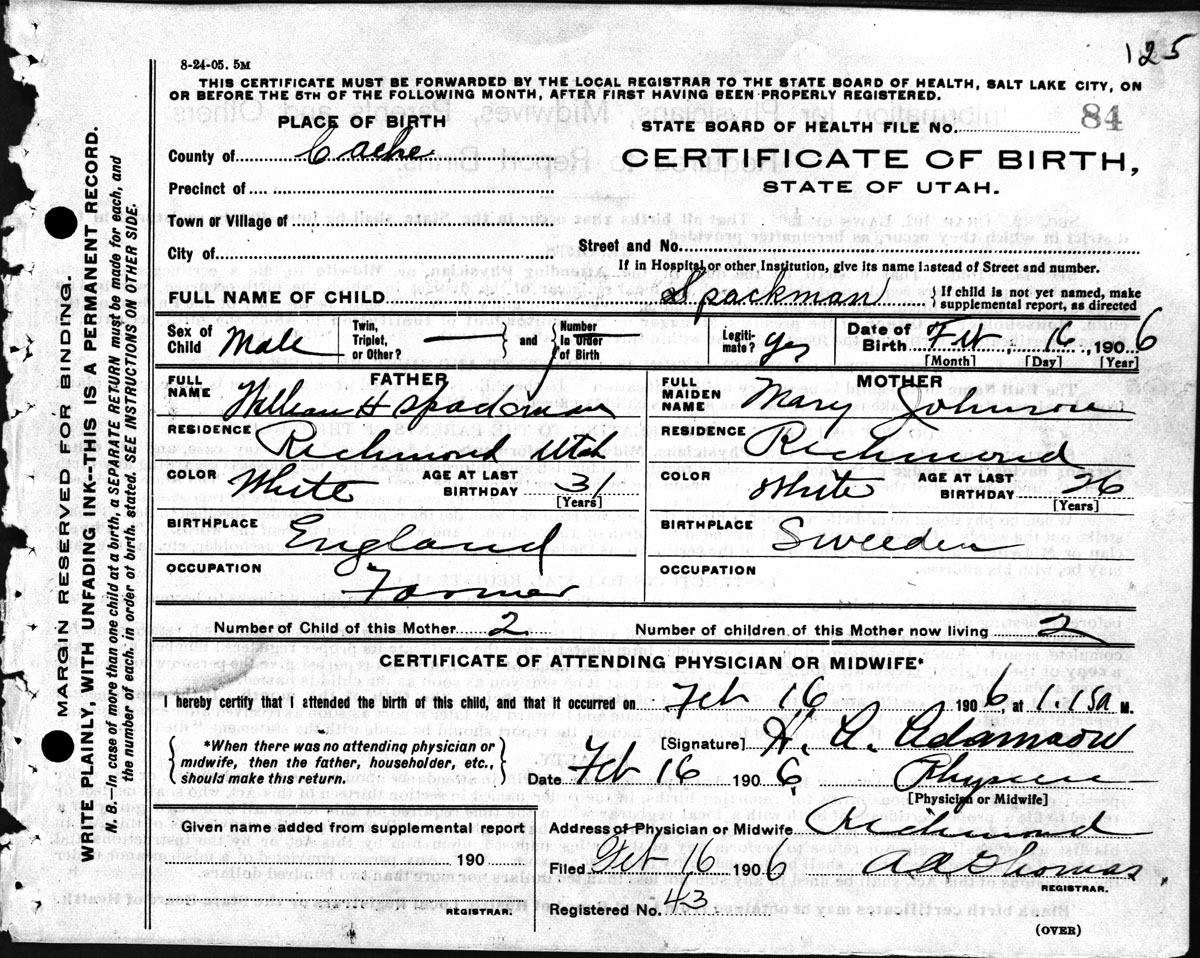 125
8-24-05. 5M
THIS CERTIFICATE MUST BE FORWARDED BY THE LOCAL REGISTRAR TO THE STATE BOARD OF HEALTH, SALT LAKE CITY, ON
OR BEFORE THE 5TH OF THE FOLLOWING MONTH, AFTER FIRST HAVING BEEN PROPERLY REGISTERED.
PLACE OF BIRTH
County of Cache
Precinct of
Town or Village of
City of
STATE BOARD OF HEALTH FILE NO. 84
CERTIFICATE OF BIRTH,
STATE OF UTAH.
Street and No.
If in Hospital or other Institution, give its name instead of Street and number.
FULL NAME OF CHILD Spackman { If child is not yet named, make
supplemental report, as directed
Sex of Child Male
Twin, Triplet, or Other? — } and { Number in Order of Birth
Legiti-mate? yes
Date of Birth Feb, 16, 1906
[Month] [Day] [Year]
FATHER
FULL NAME William H Spackman
RESIDENCE Richmond Utah
COLOR White AGE AT LAST BIRTHDAY 31
[Years]
BIRTHPLACE England
OCCUPATION Farmer
MOTHER
FULL MAIDEN NAME Mary Johnson
RESIDENCE Richmond
COLOR White AGE AT LAST BIRTHDAY 26
[Years]
BIRTHPLACE Sweeden
OCCUPATION
Number of Child of this Mother 2 Number of children of this Mother now living 2
CERTIFICATE OF ATTENDING PHYSICIAN OR MIDWIFE*
I hereby certify that I attended the birth of this child, and that it occurred on Feb 16 1906, at 1.15a M.
{ *When there was no attending physician or
midwife, then the father, householder, etc.,
should make this return. }
[Signature] H. A. Adamson
Date Feb 16 1906
[Physician or Midwife]
Given name added from supplemental report
190
REGISTRAR.
Address of Physician or Midwife Richmond
Filed Feb 16 1906 Thomas
REGISTRAR.
Registered No. 43
(OVER)
MARGIN RESERVED FOR BINDING.
WRITE PLAINLY, WITH UNFADING INK--THIS IS A PERMANENT RECORD.
N. B.—In case of more than one child at a birth, a SEPARATE RETURN must be made for each, and
the number of each, in order of birth, stated. SEE INSTRUCTIONS ON OTHER SIDE.